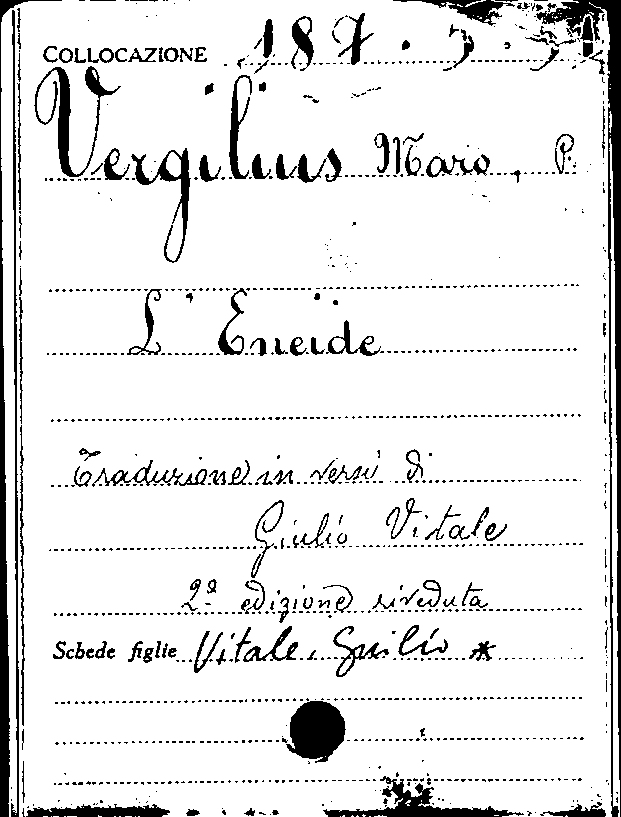 COLLOCAZIONE 187.
Vergilius Maro, P.
L'Eneïde
Traduzione in versi di
Giulio Vitale
2ª edizione riveduta
Schede figlie Vitale, Giulio *